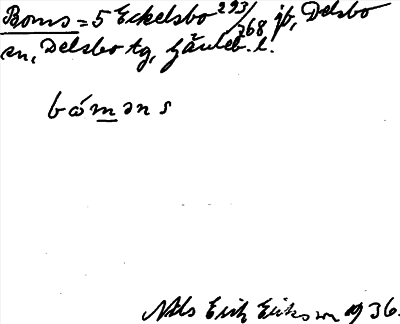 Boms = 5 Eckelsbo 293/368 jb, Delsbo
sn, Delsbo tg, Gävleb. l.
bómǝns
Nils Erik Eriksson 1936.